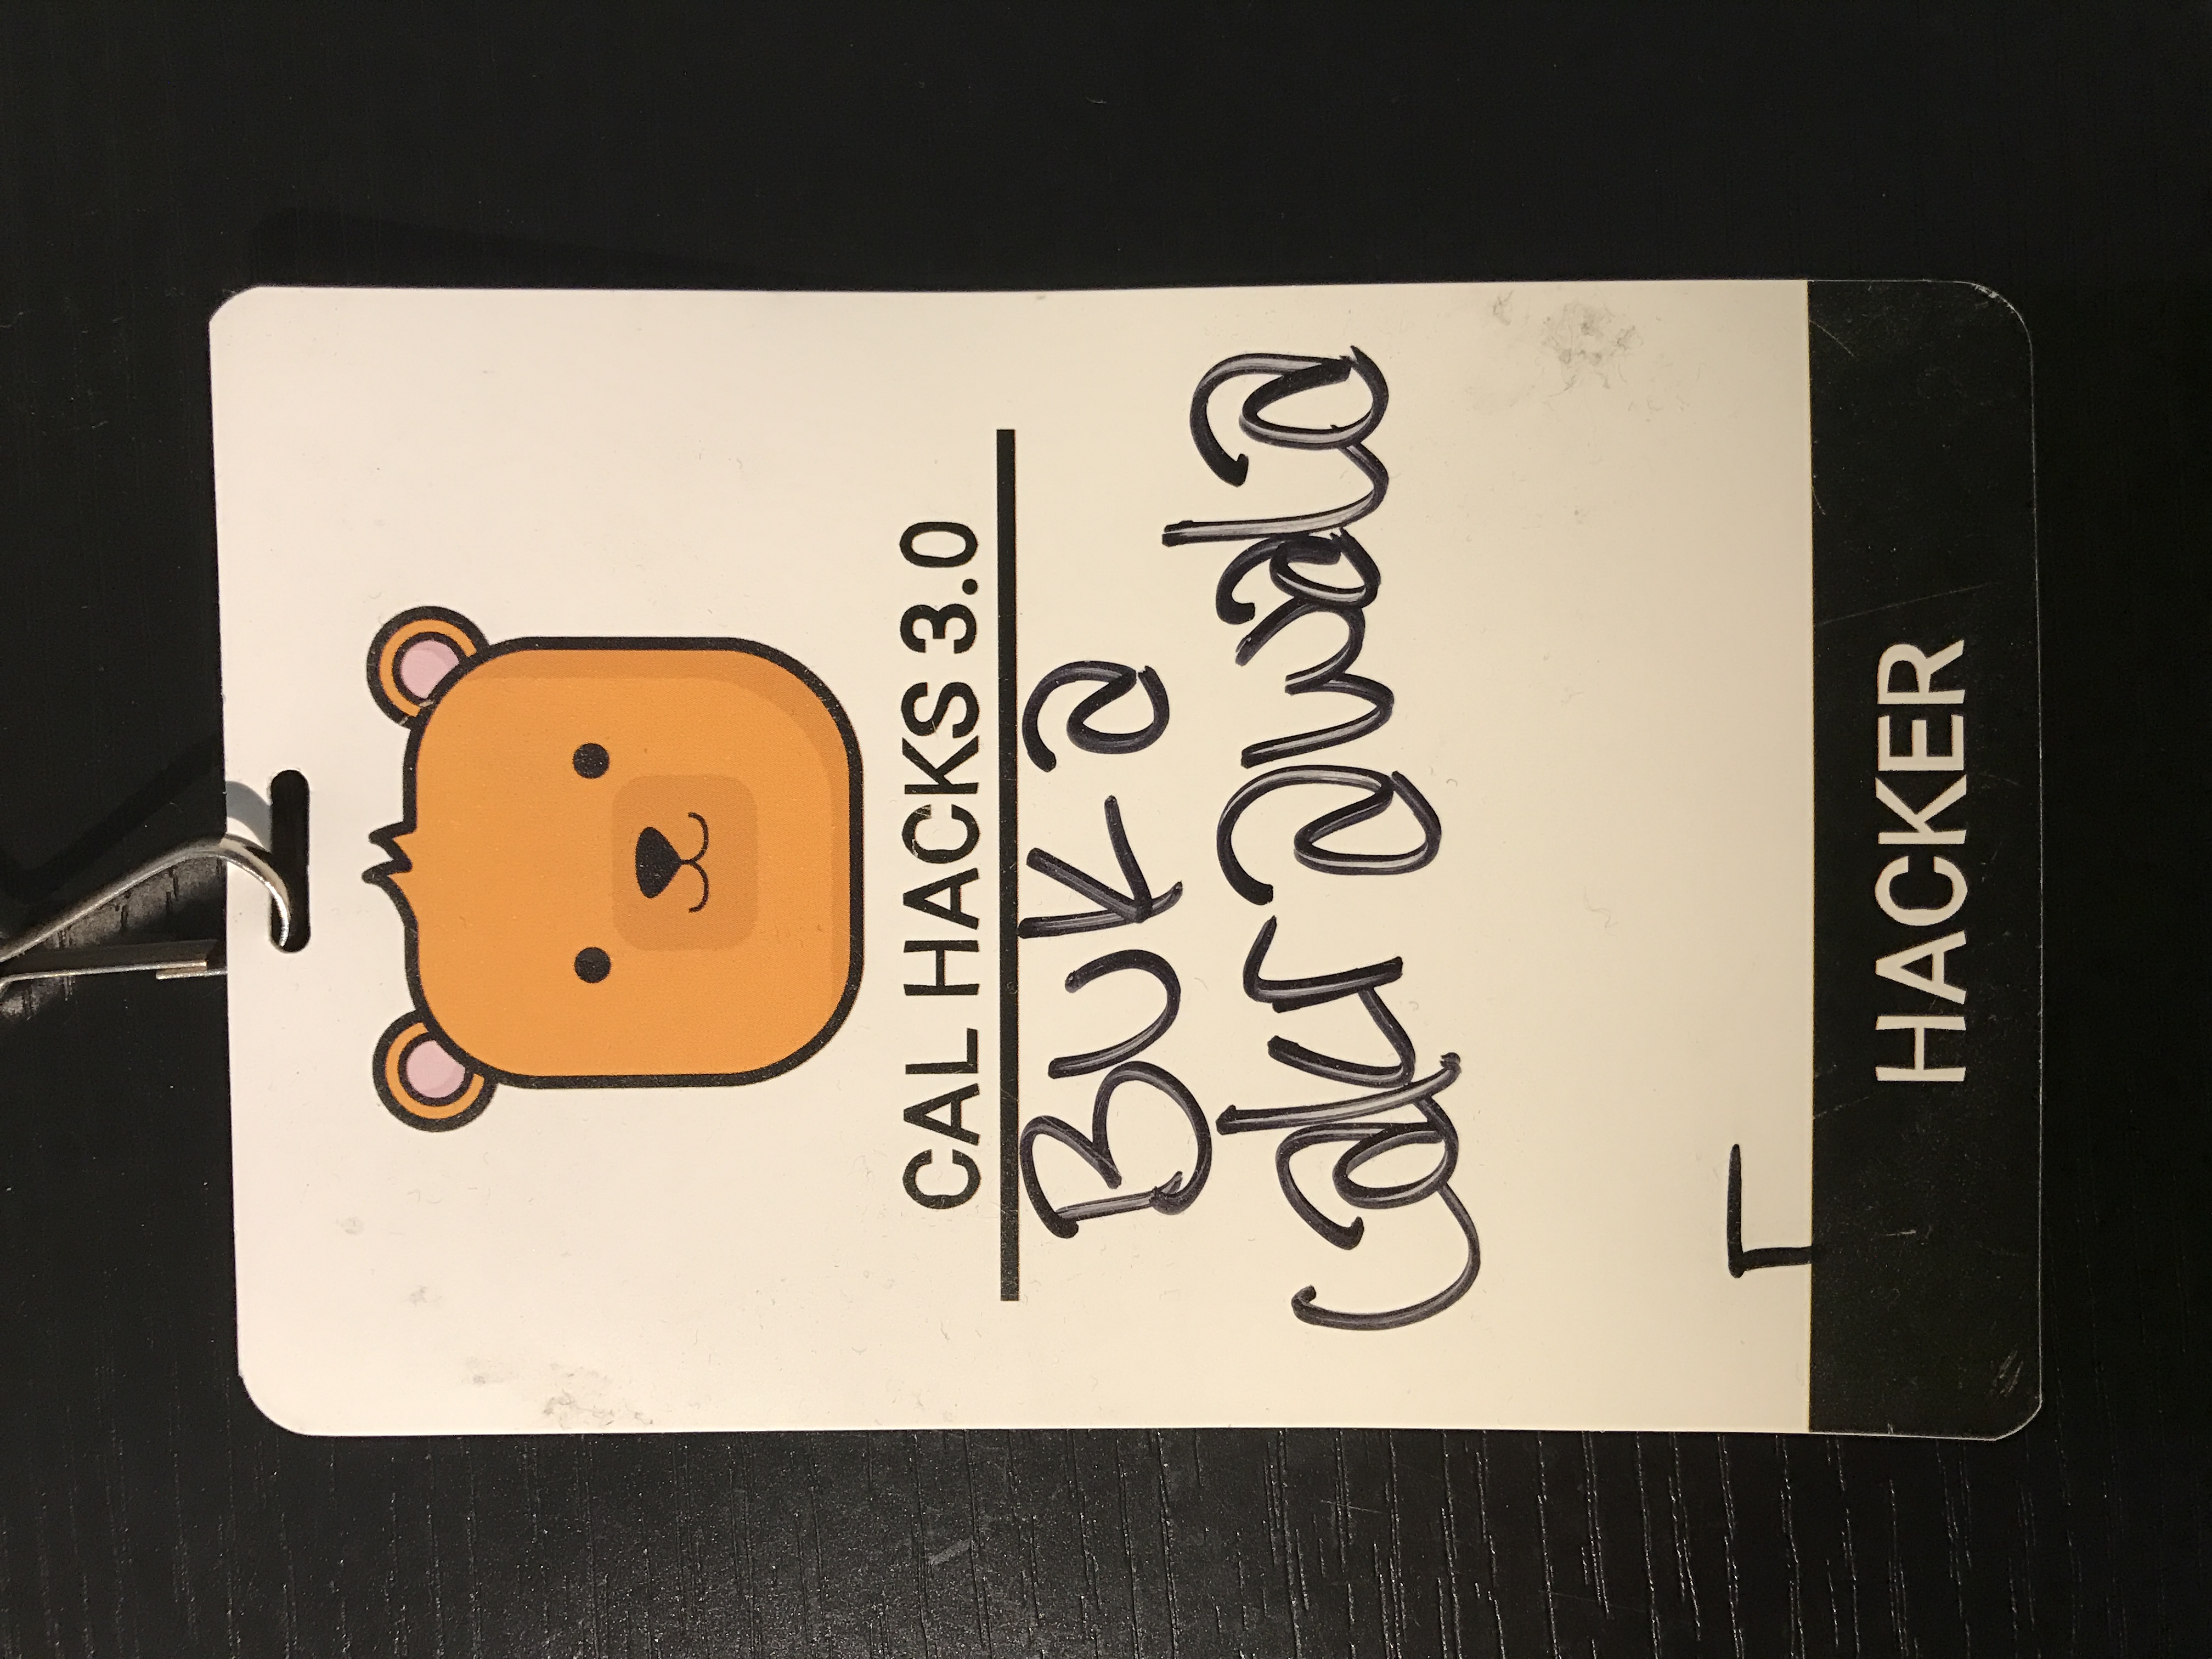 CAL HACKS 3.0
Buka
Cakrawala
HACKER